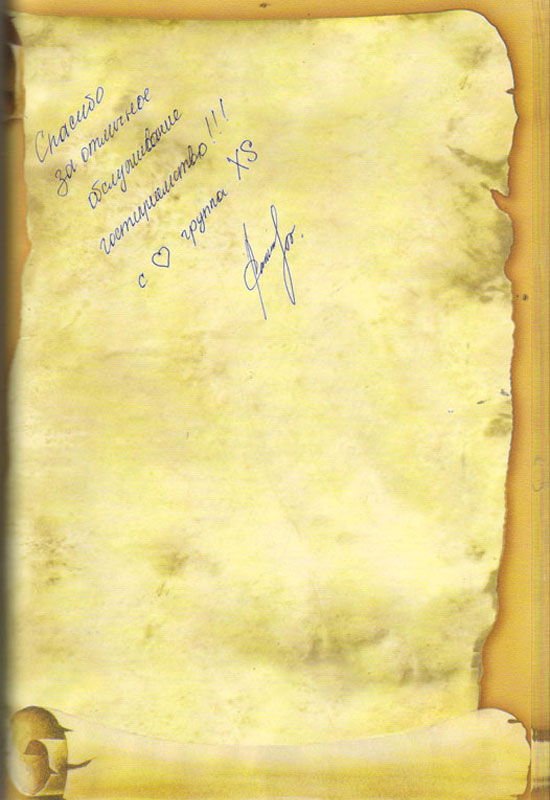 Спасибо
за отличное
обслуживание
гостиприимство!!!
с ♡ группа XS